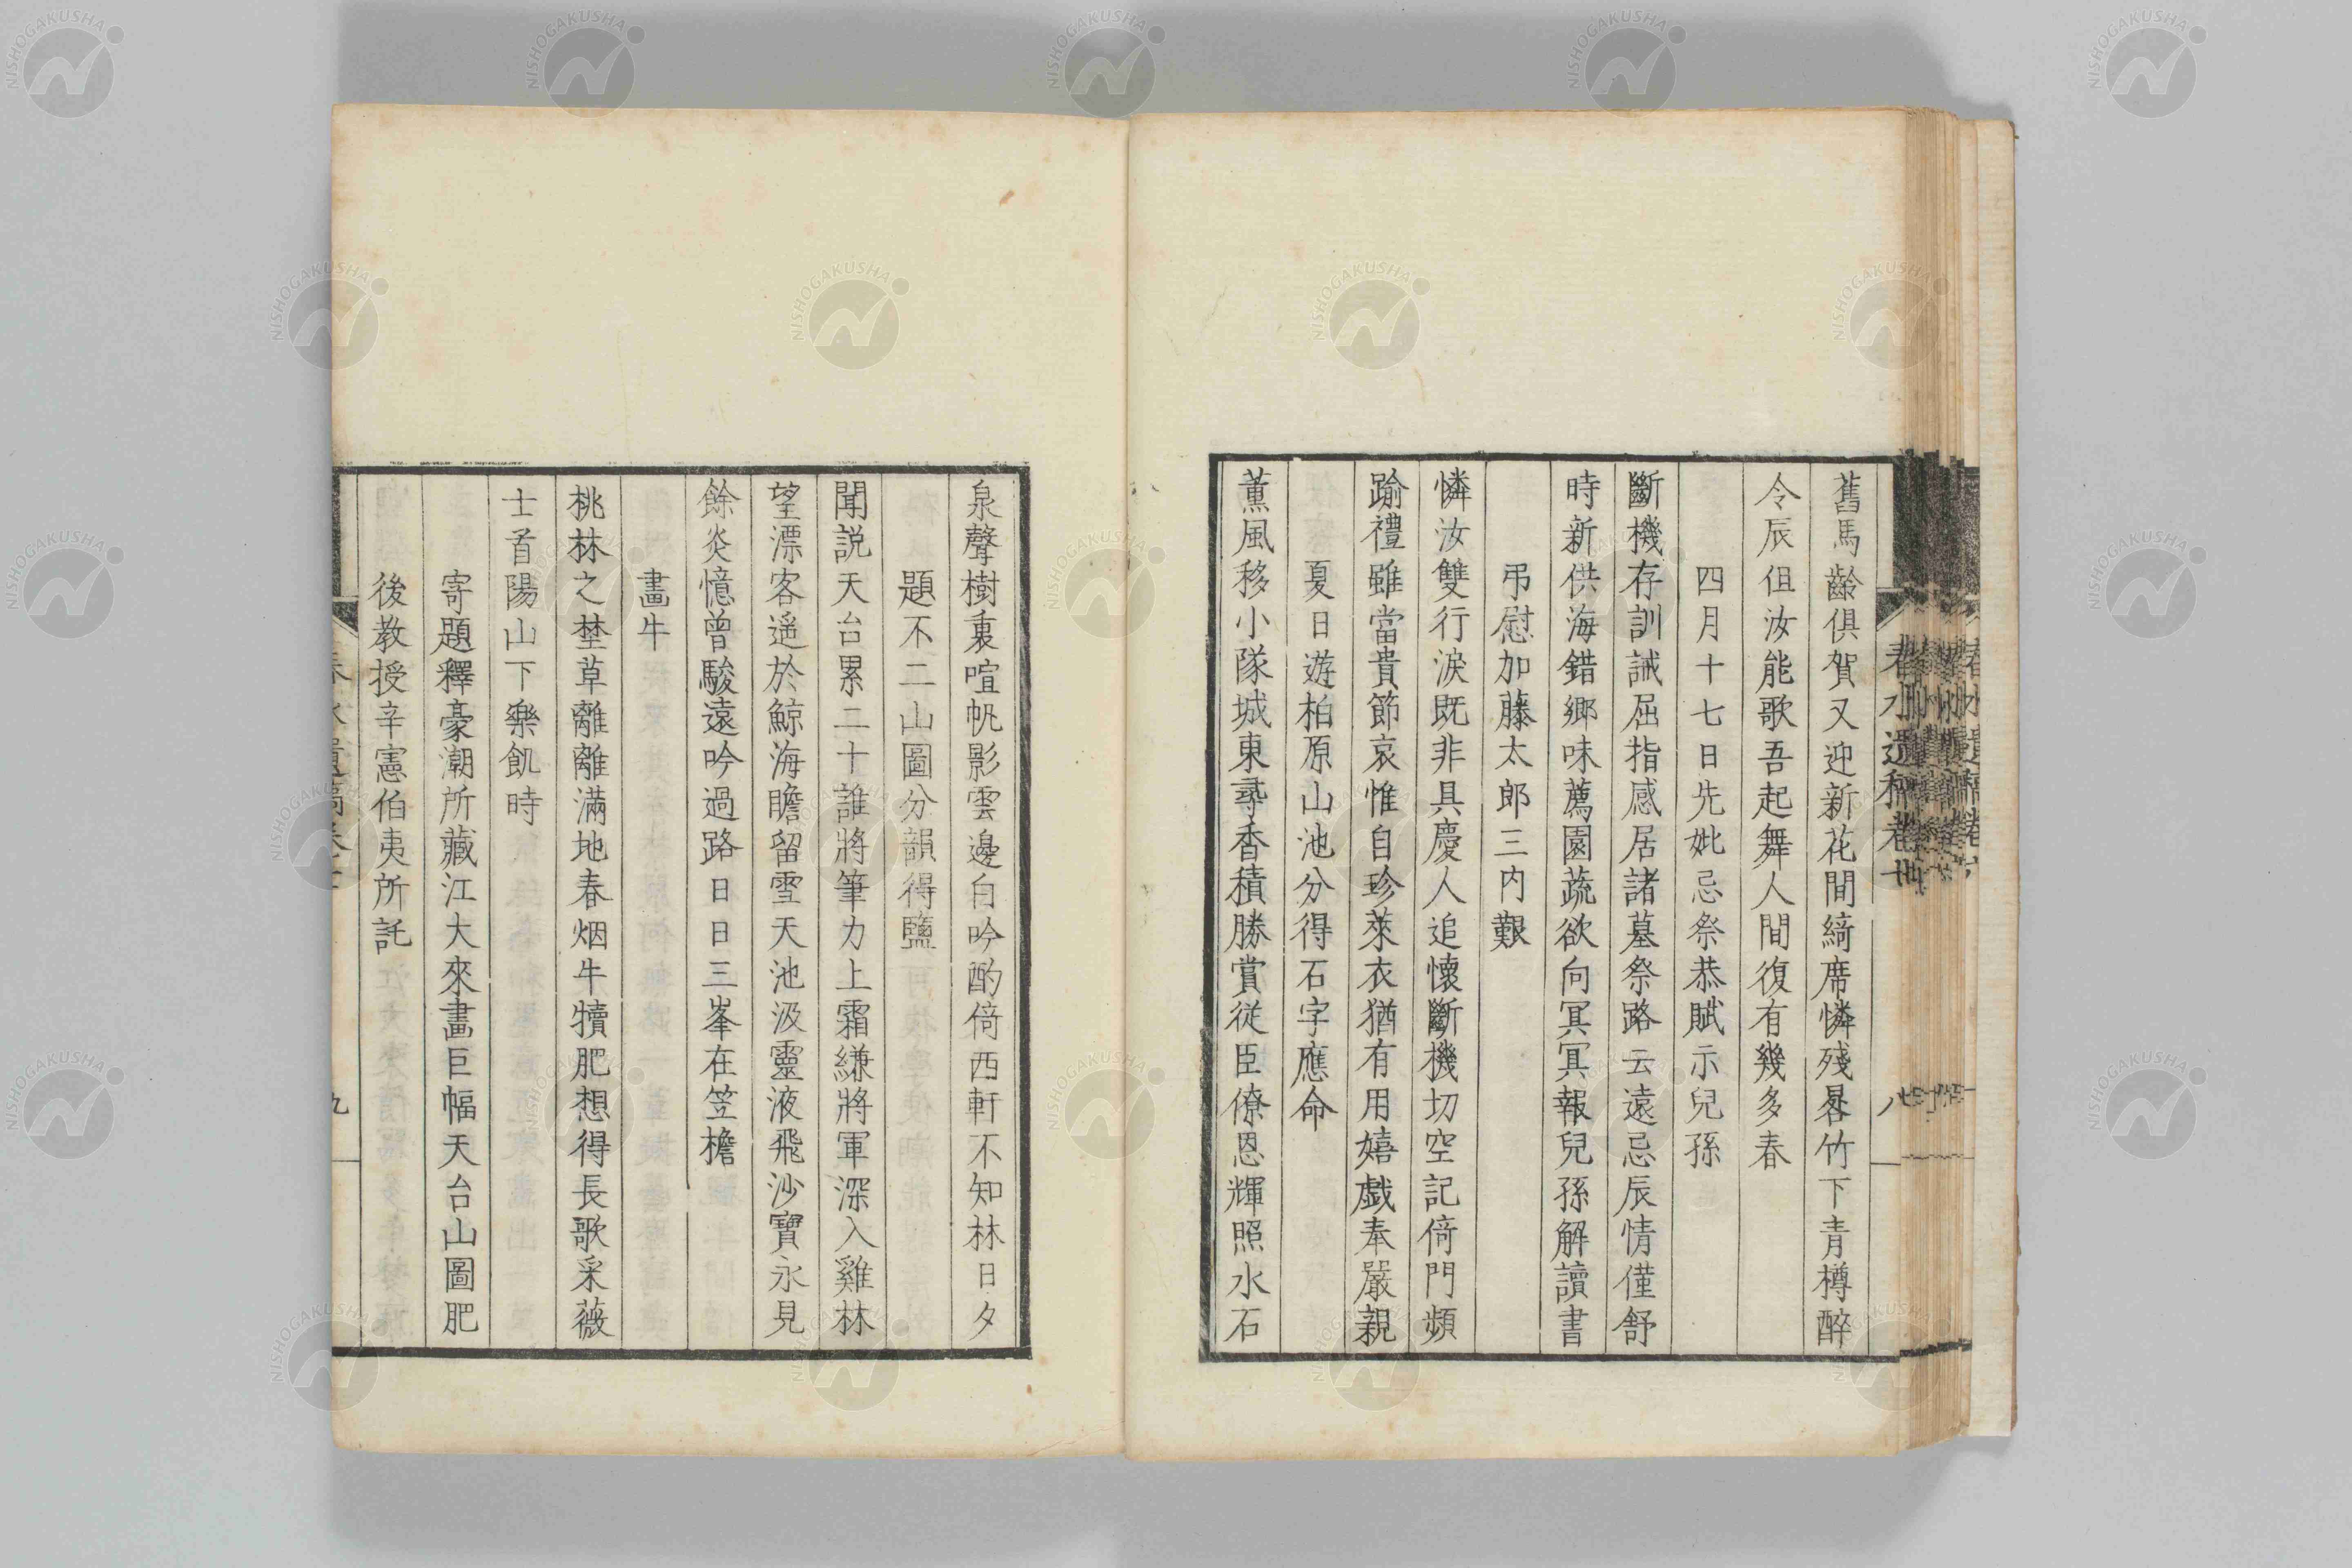 舊馬齡俱賀又迎新花間綺席憐殘晷竹下青樽醉
令辰但汝能歌吾起舞人間復有幾多春
四月十七日先妣忌祭恭賦示兒孫
斷機存訓誡屈指感居諸墓祭路云遠忌辰情僅舒
時新供海錯鄉味薦園蔬欲向冥冥報兒孫解讀書
弔慰加藤太郎三内艱
憐汝雙行淚既非具慶人追懷斷機切空記倚門頻
踰禮雖當貴節哀惟自珍萊衣猶有用嬉戯奉嚴親
夏日遊柏原山池分得石字應命
薰風移小隊城東尋香積勝賞従臣僚恩輝照水石
泉聲樹裏喧帆影雲邊白吟酌倚西軒不知林日夕
題不二山圖分韻得鹽
聞説天台累二十誰將筆力上霜縑將軍深入雞林
望漂客遙於鯨海瞻留雪天池汲靈液飛沙寶永見
餘炎憶曾駿遠吟過路日日三峯在笠檐
畫牛
桃林之埜草離離滿地春烟牛犢肥想得長歌采薇
士首陽山下樂飢時
寄題釋豪潮所藏江大來畫巨幅天台山圖肥
後教授辛憲伯夷所託
八
九
NISHOGAKUSHA